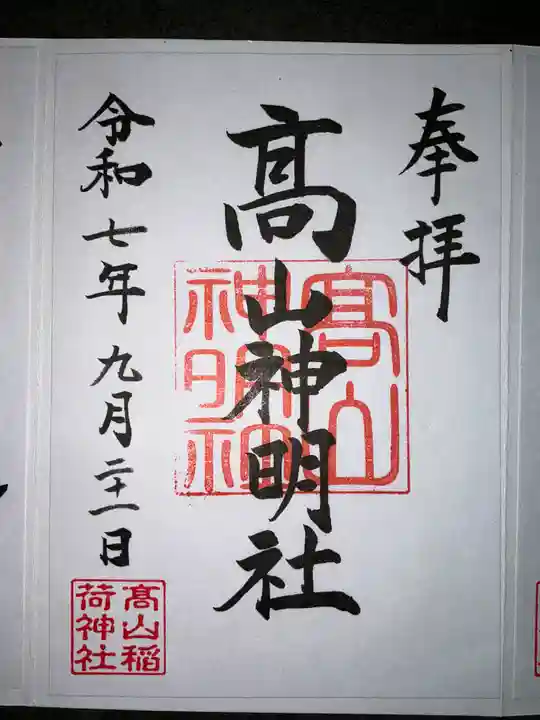 奉拝
髙山神明社
髙山
神明社
令和七年九月二十一日
髙山稲
荷神社